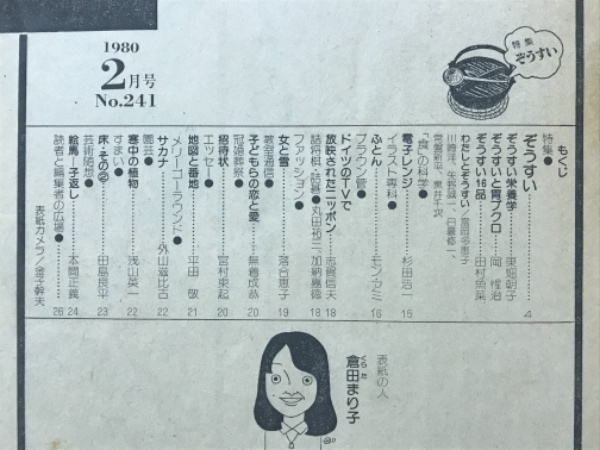 1980
2月号
No.241
特集
ぞうすい
もくじ
特集●
ぞうすい 4
ぞうすい栄養学 東畑朝子
ぞうすいと胃ブクロ 岡 惺治
ぞうすい16品 田村魚菜
わたしとぞうすい/富岡多恵子
川崎洋、矢野誠一、日景修一、
常盤新平、黒井千次
「食」の科学●
電子レンジ 杉田浩一 15
イラスト専科●
ふとん モンノミ 16
ブラウン管●
ドイツのTVで
放映されたニッポン 志賀信夫 18
詰将棋・詰碁●丸田祐三、加納嘉徳 18
ファッション●
女と雪 落合恵子 19
教室通信●
子どもらの恋と愛 無着成恭 20
冠婚葬祭●
招待状 宮村東起 20
エッセー●
地図と番地 平田 敬 21
メリーゴーラウンド●
サカナ 外山滋比古 22
園芸●
寒中の植物 浅山英一 22
すまい●
床・その② 田島良平 23
芸術随想●
絵馬―子返し 本間正義 24
読者と編集者の広場● 26
表紙カメラ/金子幹夫
表紙の人
倉田まり子
くらた